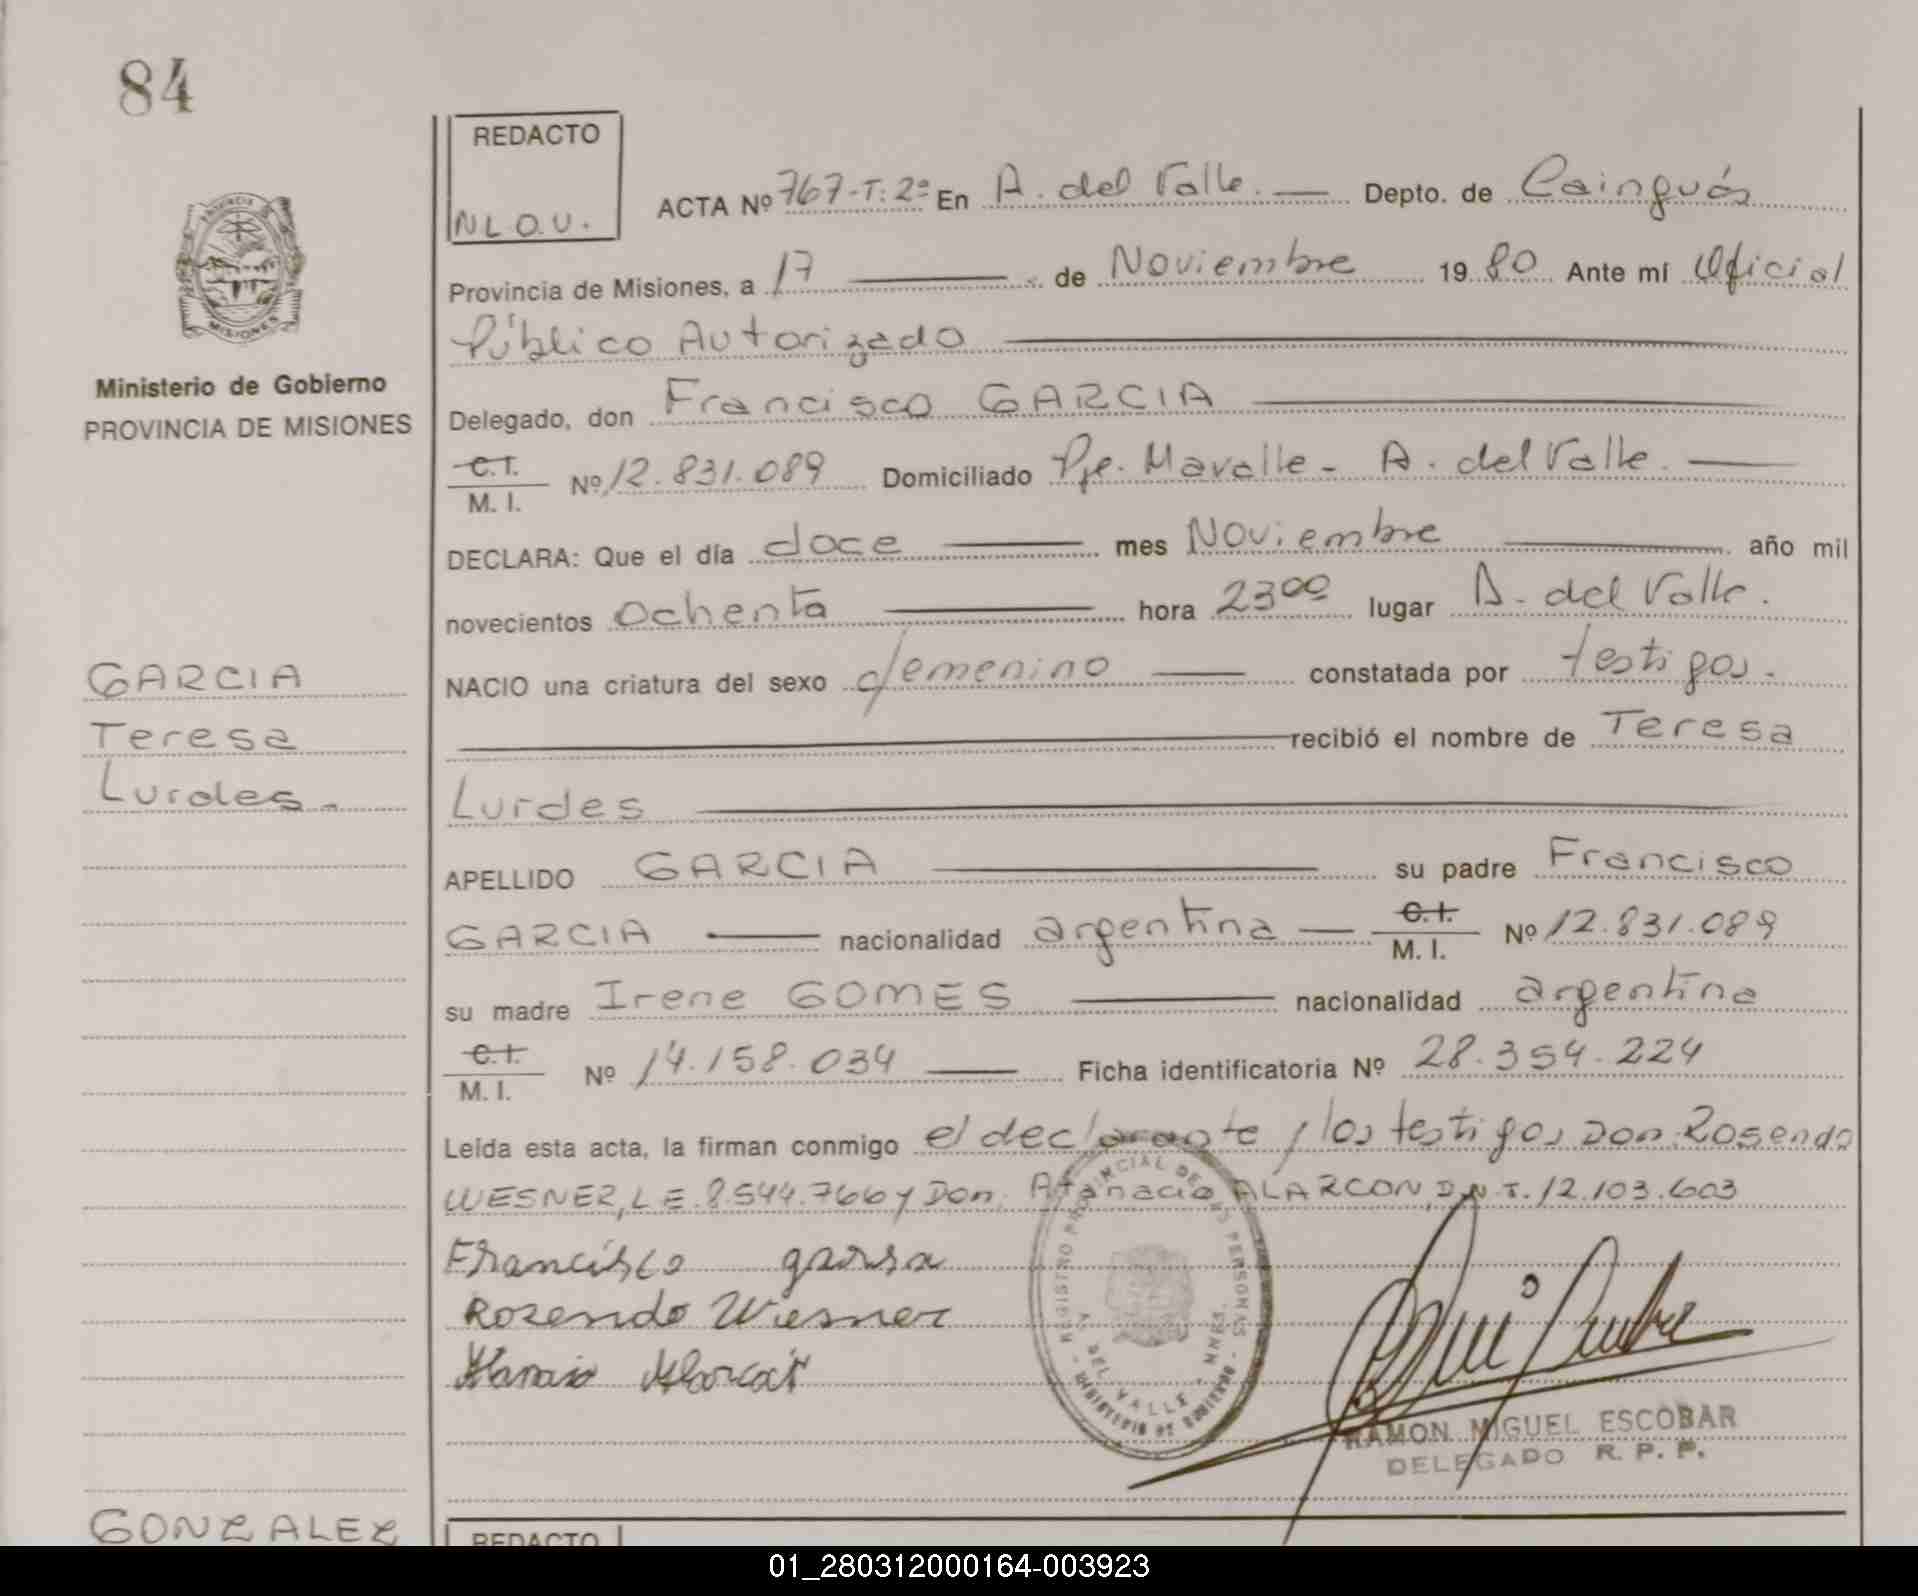 84
REDACTO
N.L.O.U.
ACTA Nº 767-T: 2º En A. del Valle. Depto. de Cainguás
Provincia de Misiones, a 17 de Noviembre 19 80 Ante mí Oficial
Público Autorizado
Ministerio de Gobierno
PROVINCIA DE MISIONES
Delegado, don Francisco GARCIA
C.I.
M. I. Nº 12.831.089 Domiciliado Pje. Mavalle - A. del Valle.
DECLARA: Que el día doce mes Noviembre año mil
novecientos ochenta hora 23⁰⁰ lugar A. del Valle.
GARCIA
Teresa
Lurdes.
NACIO una criatura del sexo femenino constatada por testigos.
recibió el nombre de Teresa
Lurdes
APELLIDO GARCIA su padre Francisco
GARCIA nacionalidad argentina C.I. M. I. Nº 12.831.089
su madre Irene GOMES nacionalidad argentina
C.I.
M. I. Nº 14.158.034 Ficha identificatoria Nº 28.354.224
Leída esta acta, la firman conmigo el declarante y los testigos Don: Rosendo
WESNER, L E. 8.544.766 y Don: Atanacio ALARCON, D.N.I. 12.103.603
Francisco garsa
Rozendo Wiesner
REGISTRO PROVINCIAL DE LAS PERSONAS
A. DEL VALLE - MNES.
MINISTERIO DE GOBIERNO
RAMON MIGUEL ESCOBAR
DELEGADO R. P. P.
GONZALEZ
REDACTO
01_280312000164-003923